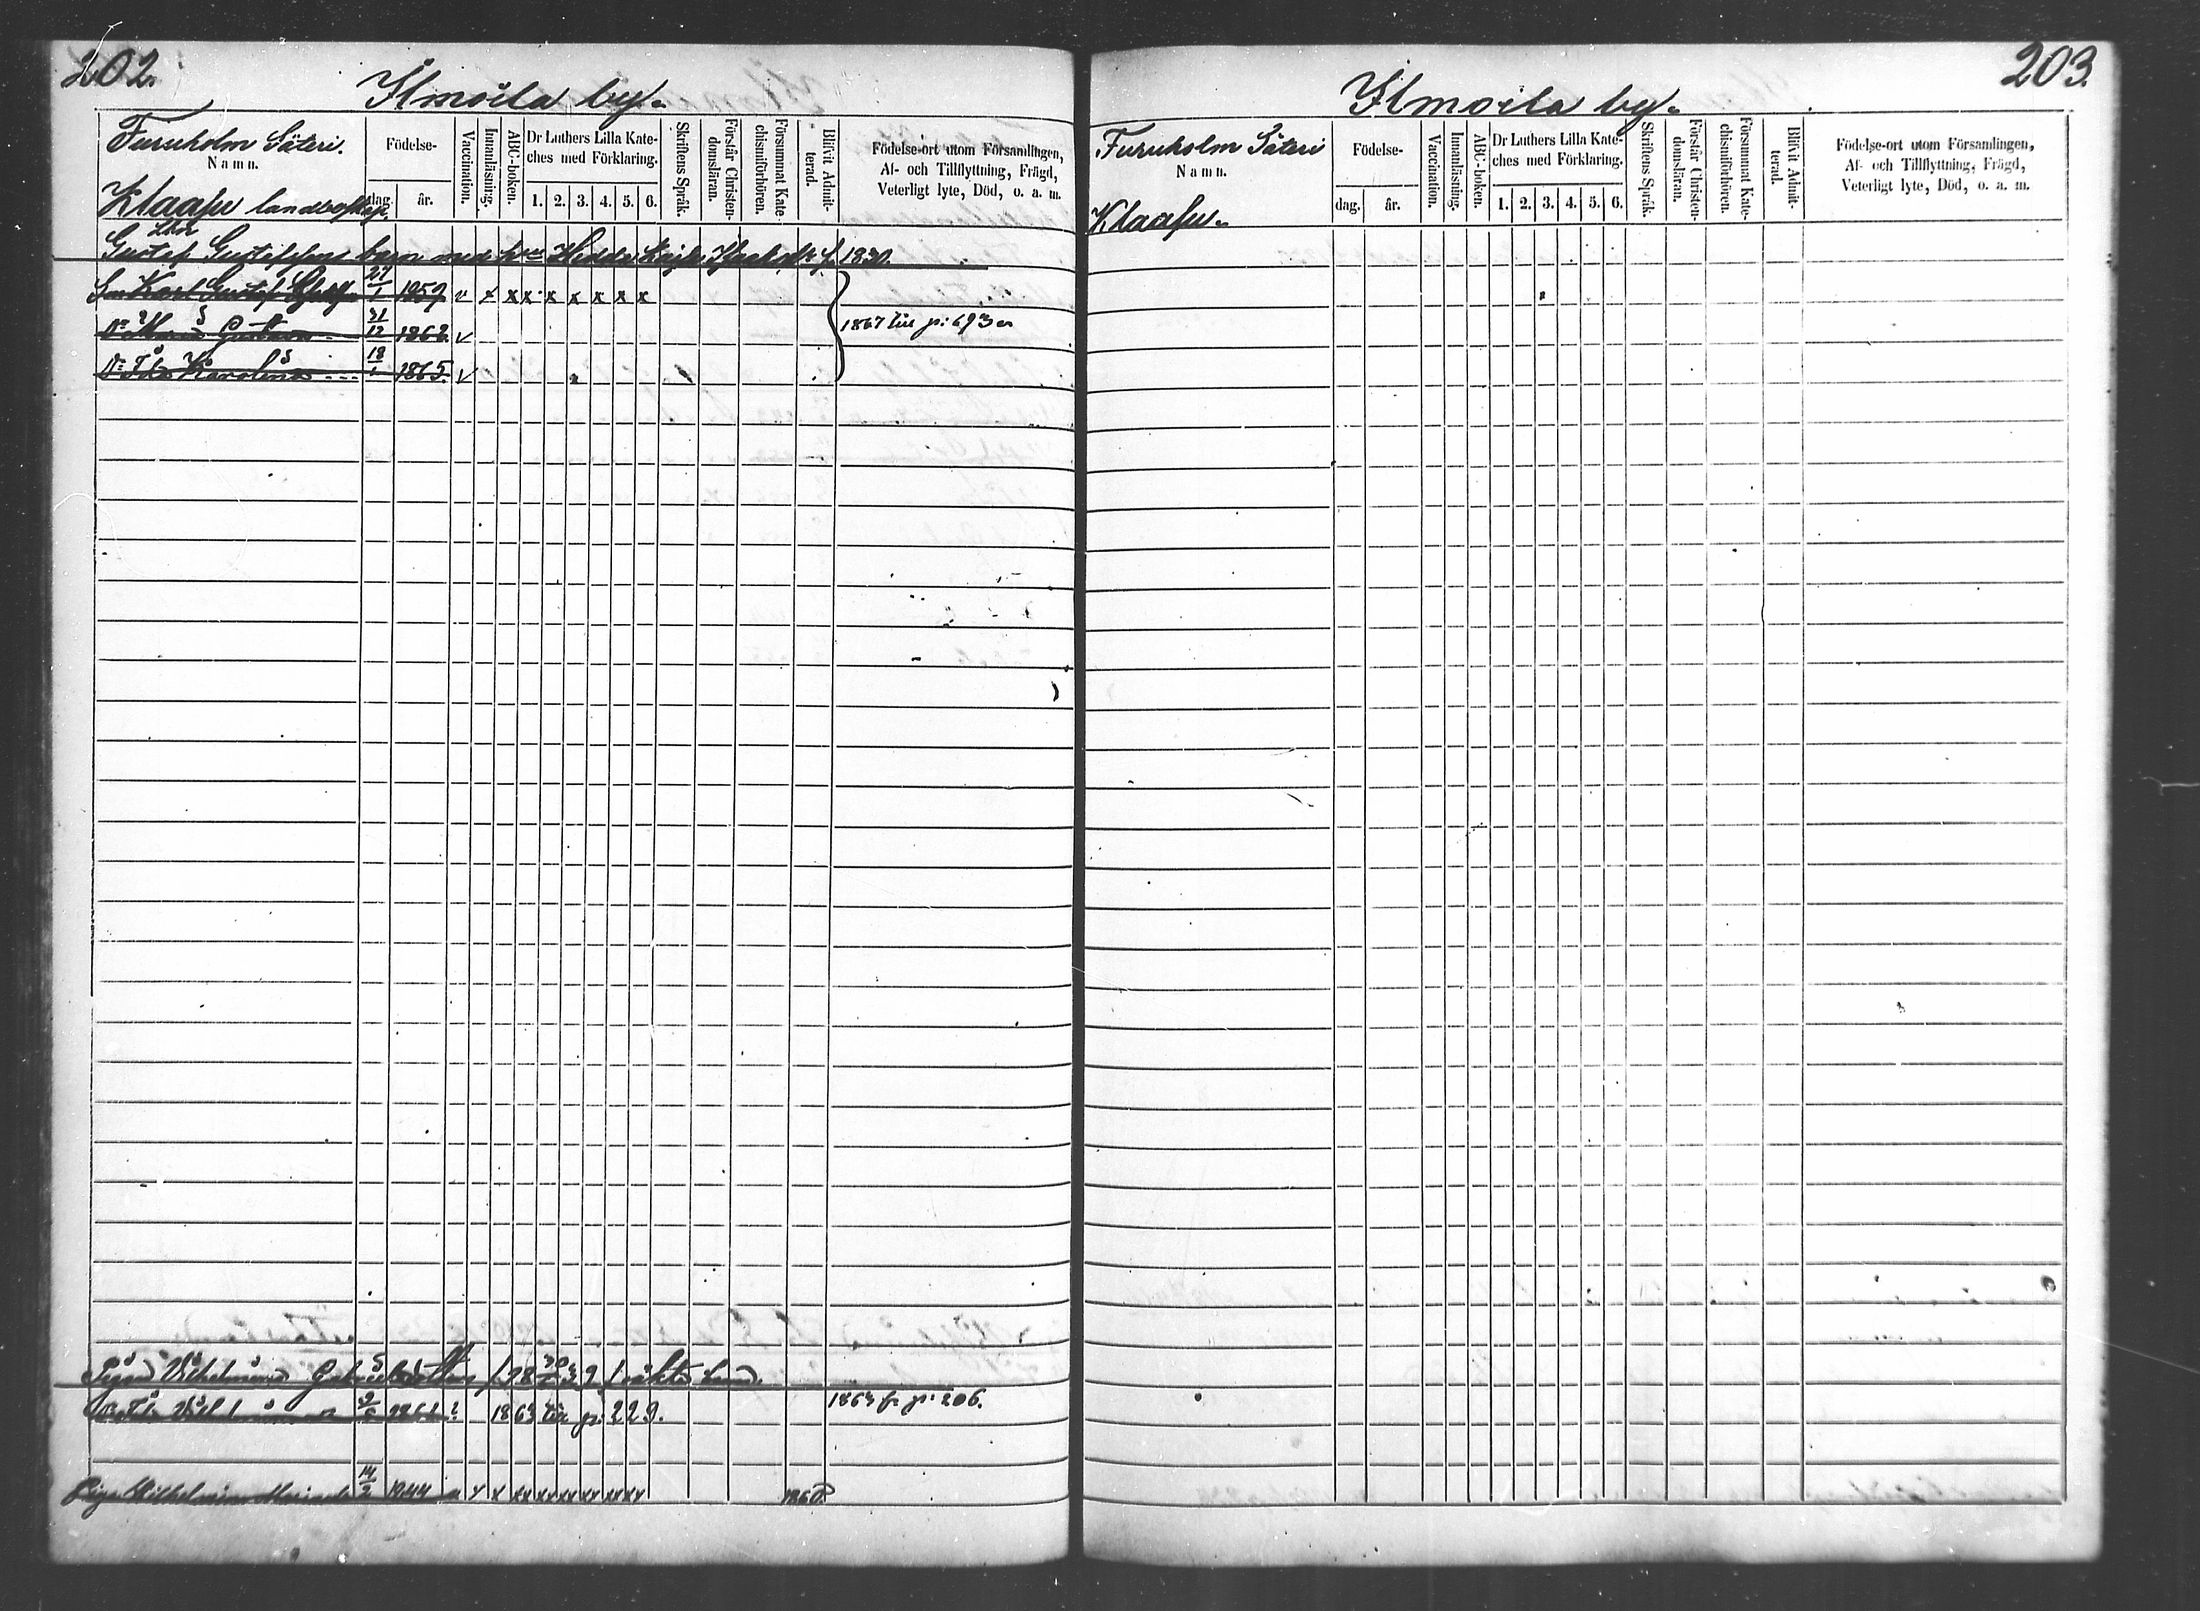 202.
Ilmoila by.
Furuholm Säteri.
Namn.
Födelse-
dag.
år.
Vaccination.
Innanläsning.
ABC-boken.
Dr Luthers Lilla Kate-
ches med Förklaring.
1. 2. 3. 4. 5. 6.
Skriftens Språk.
Förstår Christen-
domsläran.
Försummat Kate-
chismiförhören.
Blifvit Admit-
terad.
Födelse-ort utom Församlingen,
Af- och Tillflyttning, Frägd,
Veterligt lyte, Död, o. a. m.
Klaafu
Gustaf Gustafssons barn med h:u Hedda 1830.
Sn Karl Gustaf 27/1 1859 v x x x x x x x x
Dr Maria Gustava 31/12 1862 v
1867 till p: 693
Dr Ida Karolina 18/1 1865. v
Pigan Vilhelmina
Dr Ida Vilhelmina 1861 1863 till p: 229. 1863 fr p: 206.
Piga Wilhelmina 14/2 1844
203.
Ilmoila by.
Furuholm Säteri
Namn.
Klaafu.
Födelse-
dag.
år.
Vaccination.
Innanläsning.
ABC-boken.
Dr Luthers Lilla Kate-
ches med Förklaring.
1. 2. 3. 4. 5. 6.
Skriftens Språk.
Förstår Christen-
domsläran.
Försummat Kate-
chismiförhören.
Blifvit Admit-
terad.
Födelse-ort utom Församlingen,
Af- och Tillflyttning, Frägd,
Veterligt lyte, Död, o. a. m.